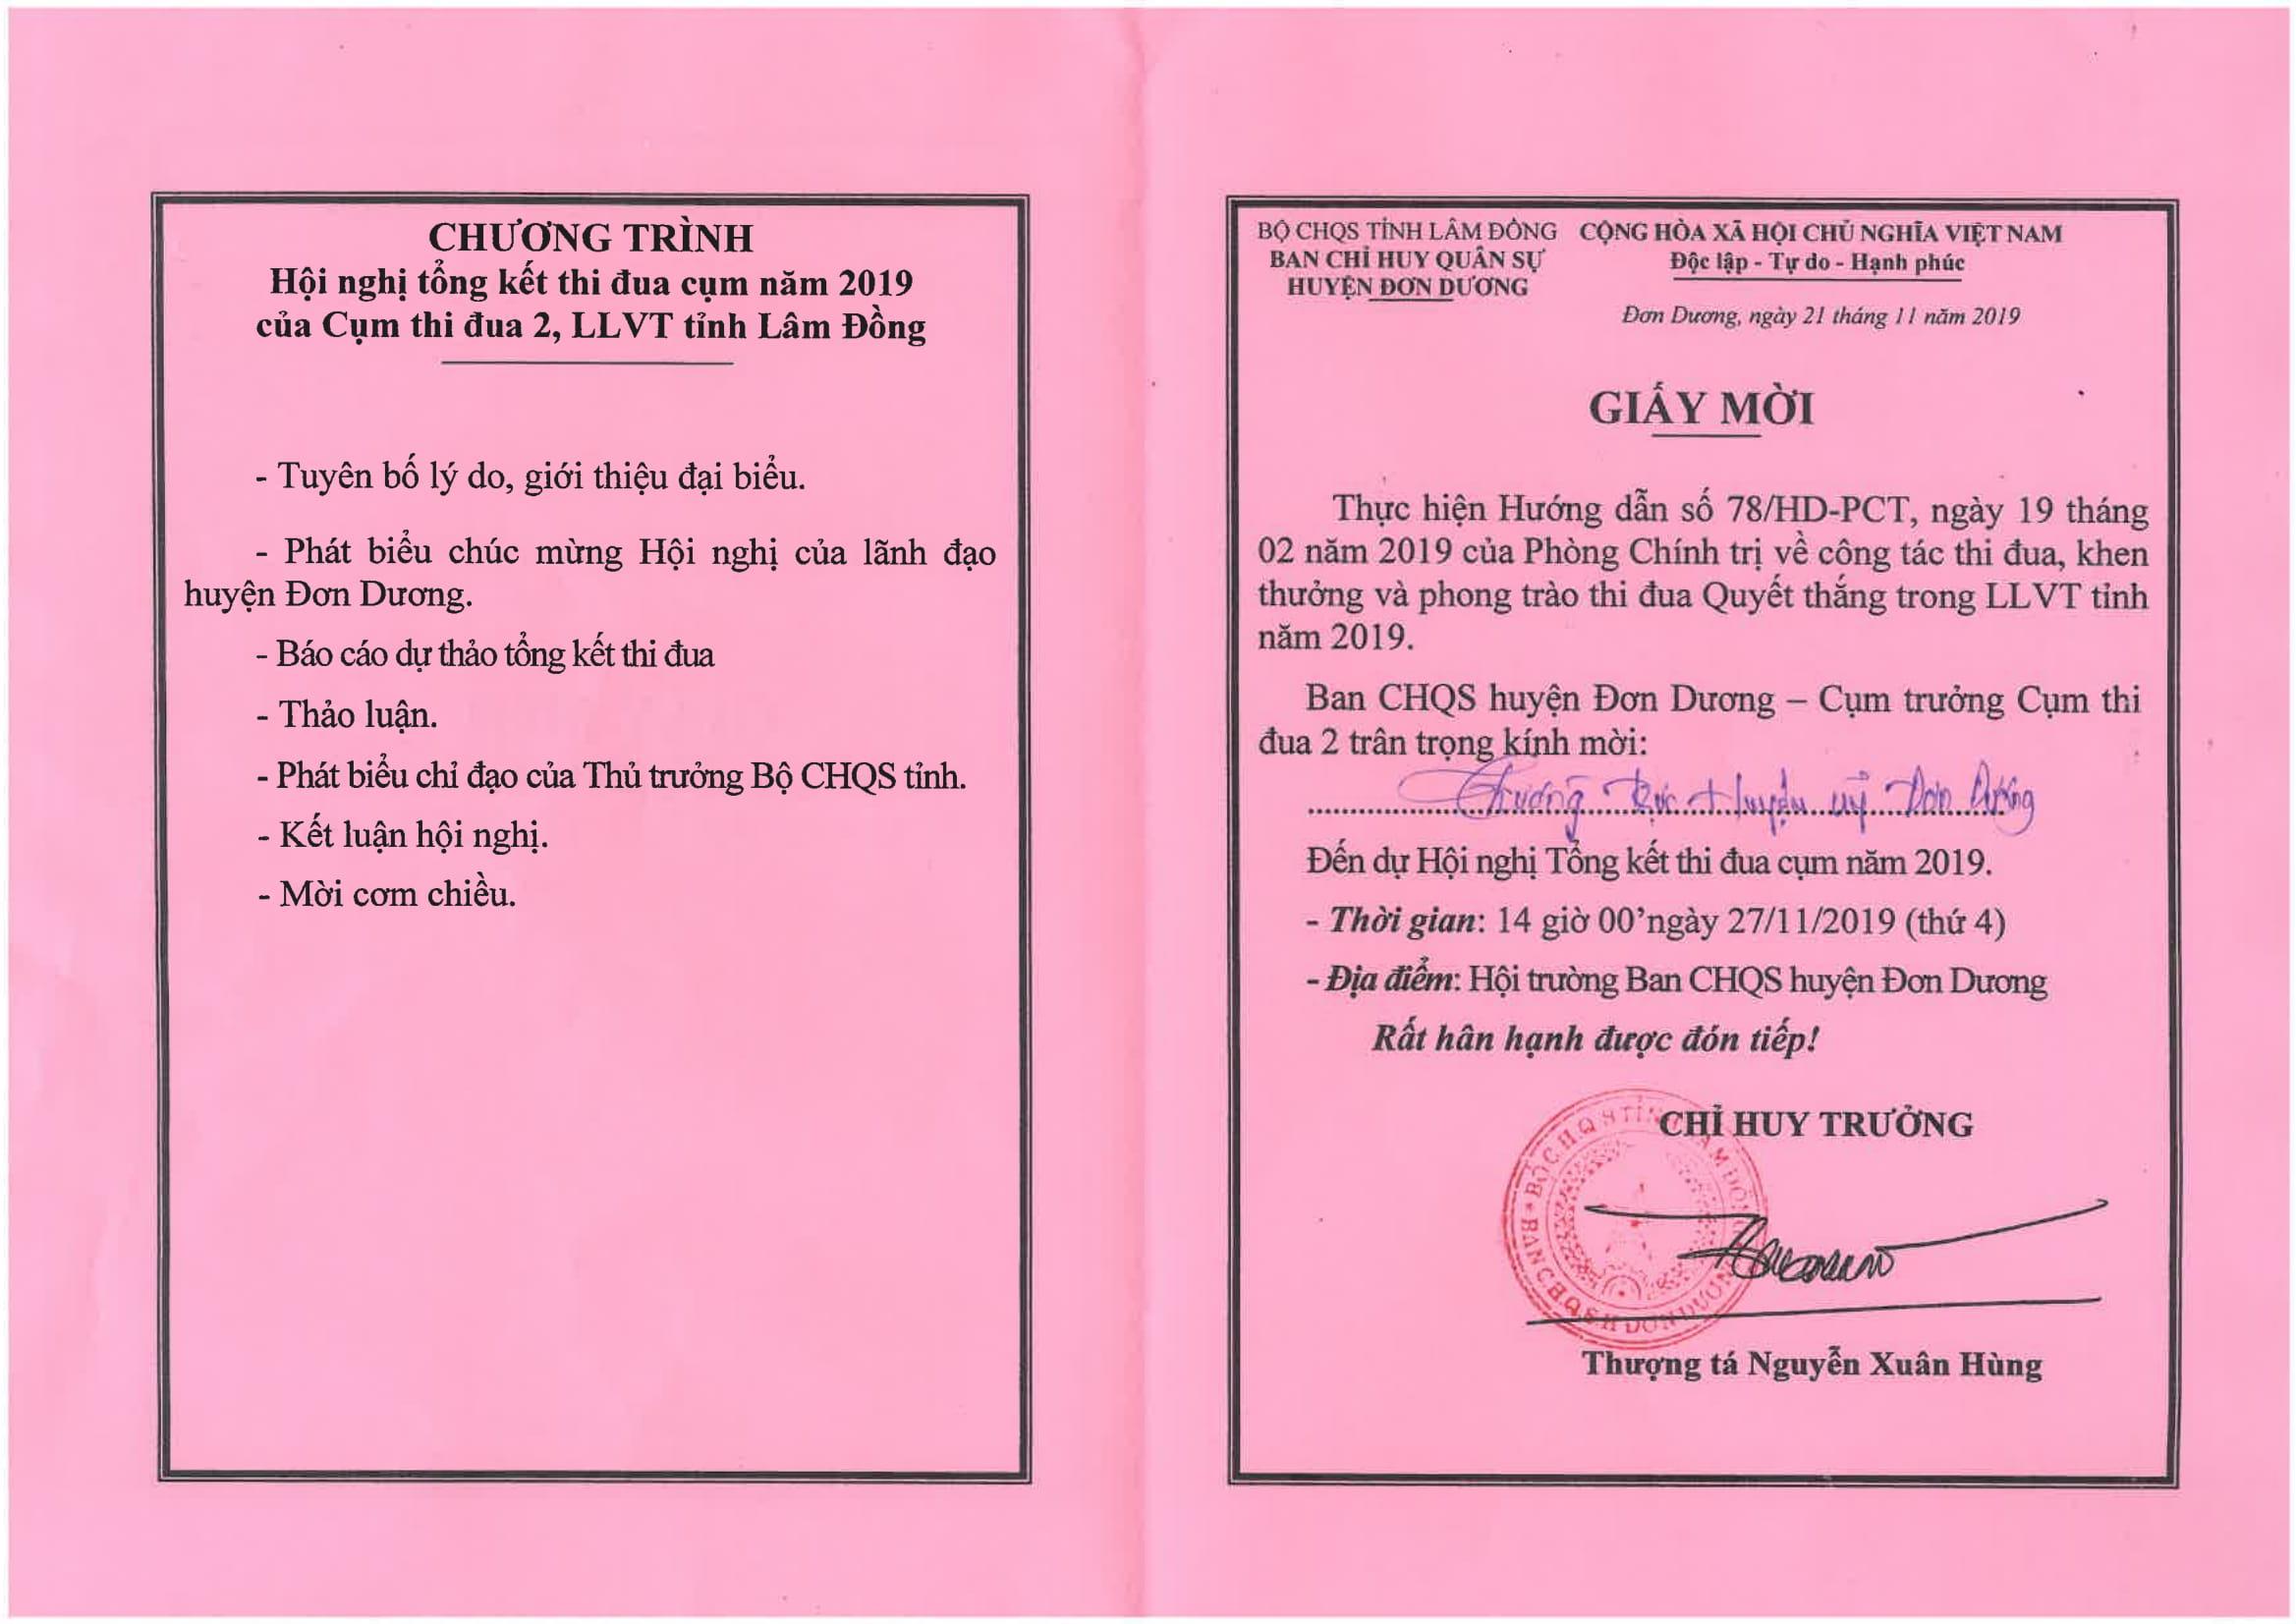 CHƯƠNG TRÌNH
Hội nghị tổng kết thi đua cụm năm 2019
của Cụm thi đua 2, LLVT tỉnh Lâm Đồng
- Tuyên bố lý do, giới thiệu đại biểu.
- Phát biểu chúc mừng Hội nghị của lãnh đạo
huyện Đơn Dương.
- Báo cáo dự thảo tổng kết thi đua
- Thảo luận.
- Phát biểu chỉ đạo của Thủ trưởng Bộ CHQS tỉnh.
- Kết luận hội nghị.
- Mời cơm chiều.
BỘ CHQS TỈNH LÂM ĐỒNG
BAN CHỈ HUY QUÂN SỰ
HUYỆN ĐƠN DƯƠNG
CỘNG HÒA XÃ HỘI CHỦ NGHĨA VIỆT NAM
Độc lập - Tự do - Hạnh phúc
Đơn Dương, ngày 21 tháng 11 năm 2019
GIẤY MỜI
Thực hiện Hướng dẫn số 78/HD-PCT, ngày 19 tháng
02 năm 2019 của Phòng Chính trị về công tác thi đua, khen
thưởng và phong trào thi đua Quyết thắng trong LLVT tỉnh
năm 2019.
Ban CHQS huyện Đơn Dương – Cụm trưởng Cụm thi
đua 2 trân trọng kính mời:
Thường trực Huyện uỷ Đơn Dương
Đến dự Hội nghị Tổng kết thi đua cụm năm 2019.
- Thời gian: 14 giờ 00’ngày 27/11/2019 (thứ 4)
- Địa điểm: Hội trường Ban CHQS huyện Đơn Dương
Rất hân hạnh được đón tiếp!
CHỈ HUY TRƯỞNG
BỘ CHQS TỈNH LÂM ĐỒNG
BAN CHQS H ĐƠN DƯƠNG
Thượng tá Nguyễn Xuân Hùng